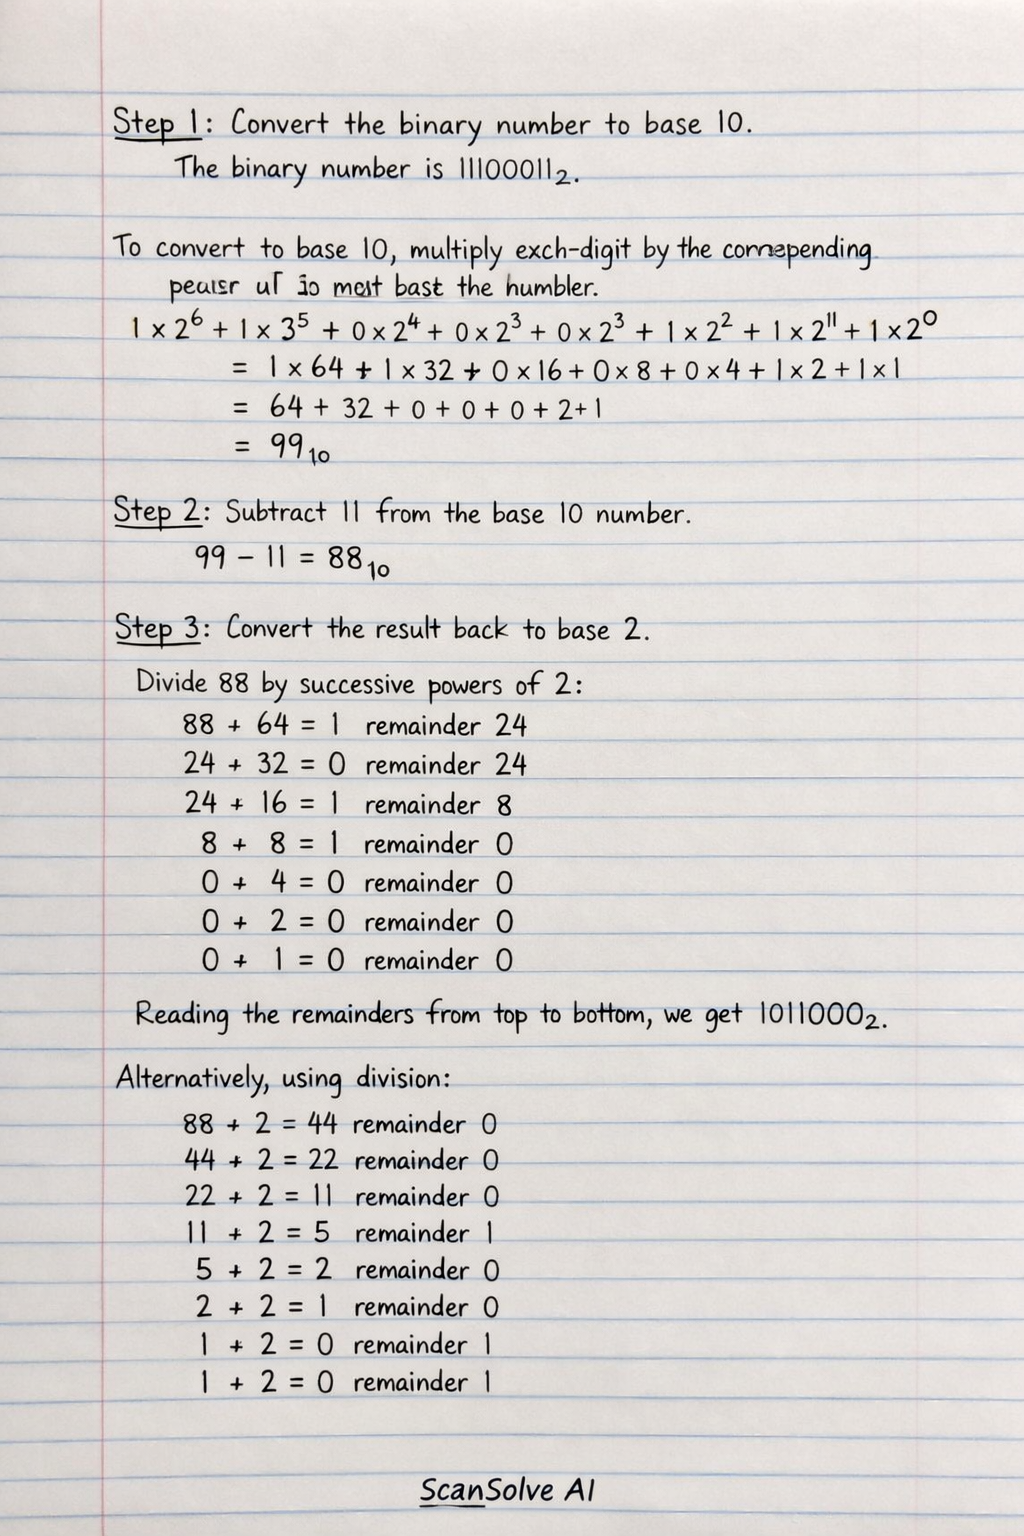 Step 1: Convert the binary number to base 10.
The binary number is 11100011₂.
To convert to base 10, multiply exch-digit by the cornepending
bast the humbler.
1 × 2⁶ + 1 × 3⁵ + 0 × 2⁴ + 0 × 2³ + 0 × 2³ + 1 × 2² + 1 × 2¹¹ + 1 × 2⁰
= 1 × 64 + 1 × 32 + 0 × 16 + 0 × 8 + 0 × 4 + 1 × 2 + 1 × 1
= 64 + 32 + 0 + 0 + 0 + 2 + 1
= 99₁₀
Step 2: Subtract 11 from the base 10 number.
99 − 11 = 88₁₀
Step 3: Convert the result back to base 2.
Divide 88 by successive powers of 2:
88 + 64 = 1 remainder 24
24 + 32 = 0 remainder 24
24 + 16 = 1 remainder 8
8 + 8 = 1 remainder 0
0 + 4 = 0 remainder 0
0 + 2 = 0 remainder 0
0 + 1 = 0 remainder 0
Reading the remainders from top to bottom, we get 1011000₂.
Alternatively, using division:
88 + 2 = 44 remainder 0
44 + 2 = 22 remainder 0
22 + 2 = 11 remainder 0
11 + 2 = 5 remainder 1
5 + 2 = 2 remainder 0
2 + 2 = 1 remainder 0
1 + 2 = 0 remainder 1
1 + 2 = 0 remainder 1
ScanSolve AI